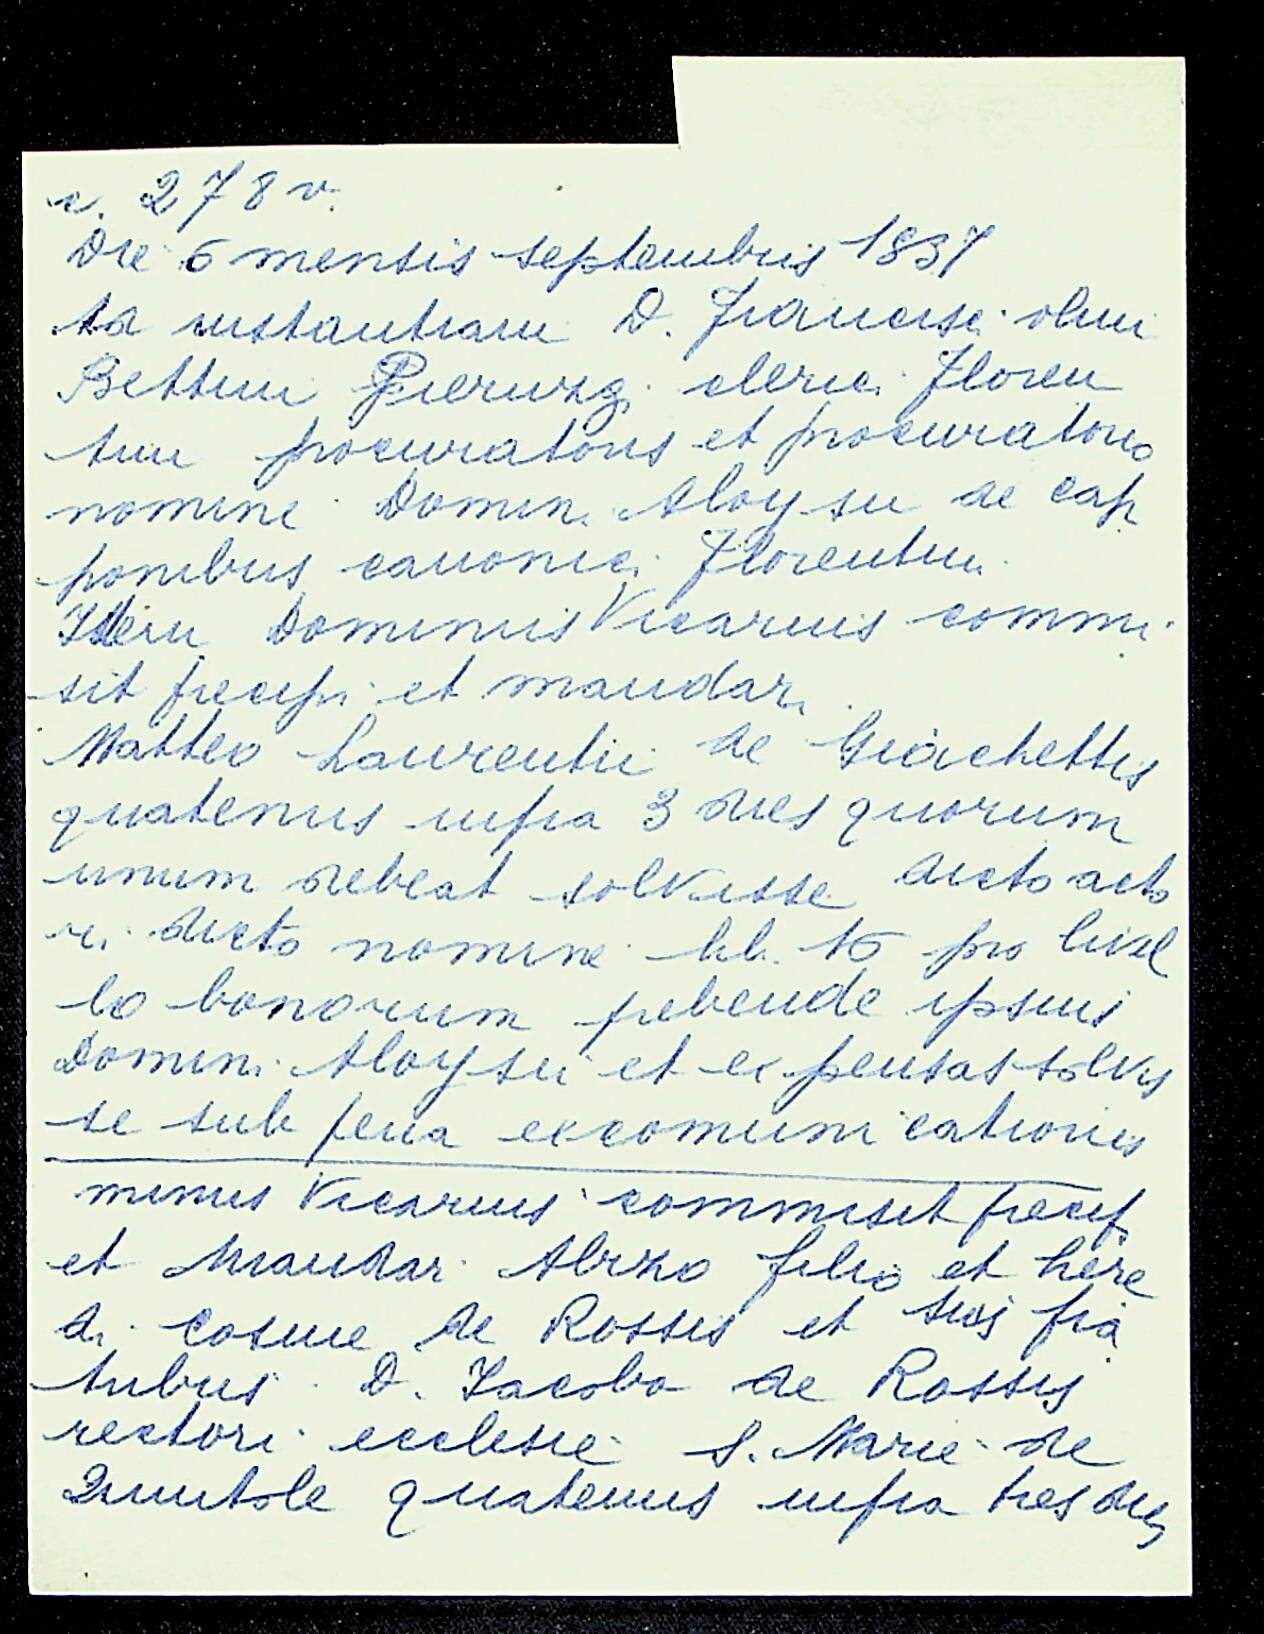 c. 278 v.
Die 6 mensis septembris 1537
Ad instantiam D. Francisci olim
Bettini Pierozzi clerici Floren
tini procuratoris et procuratorio
nomine Domini Aloysii de Cap
ponibus canonici Florentini
Idem Dominus Vicarius commi
sit precipi et mandari
Matteo Laurentii de Giachettis
quatenus infra 3 dies quorum
unum debeat solvisse dicto acto
ri dicto nomine lib. 16 pro livel
lo bonorum prebende ipsius
Domini Aloysii et expensas solvis
se sub pena excomunicationis
minus Vicarius commisit precip
et mandari filio et here
di Cosme de Rossis et suis fra
tribus D. Jacobo de Rossis
rectori ecclesie S. Marie de
Quintole quatenus infra tres dies